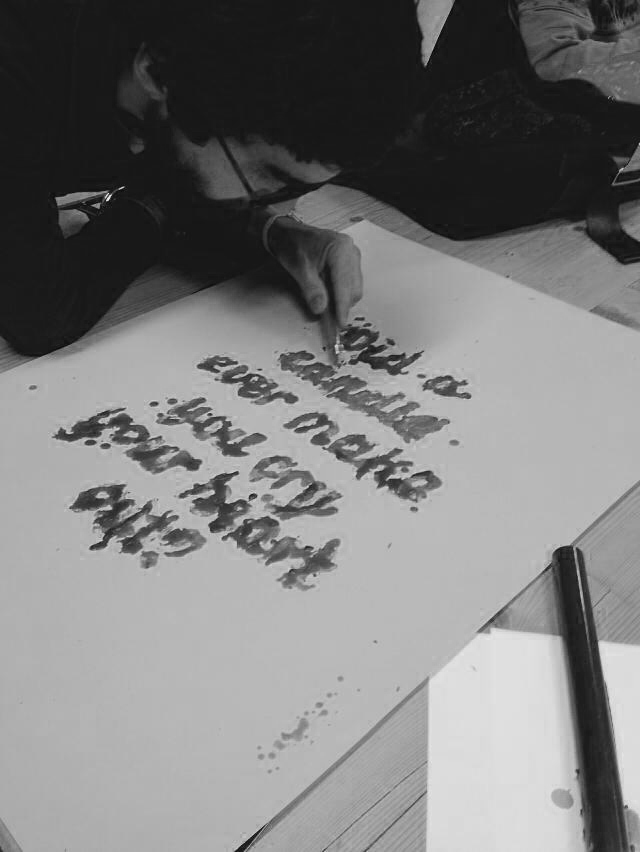 Did a
candle
ever make
you cry
your heart
out?